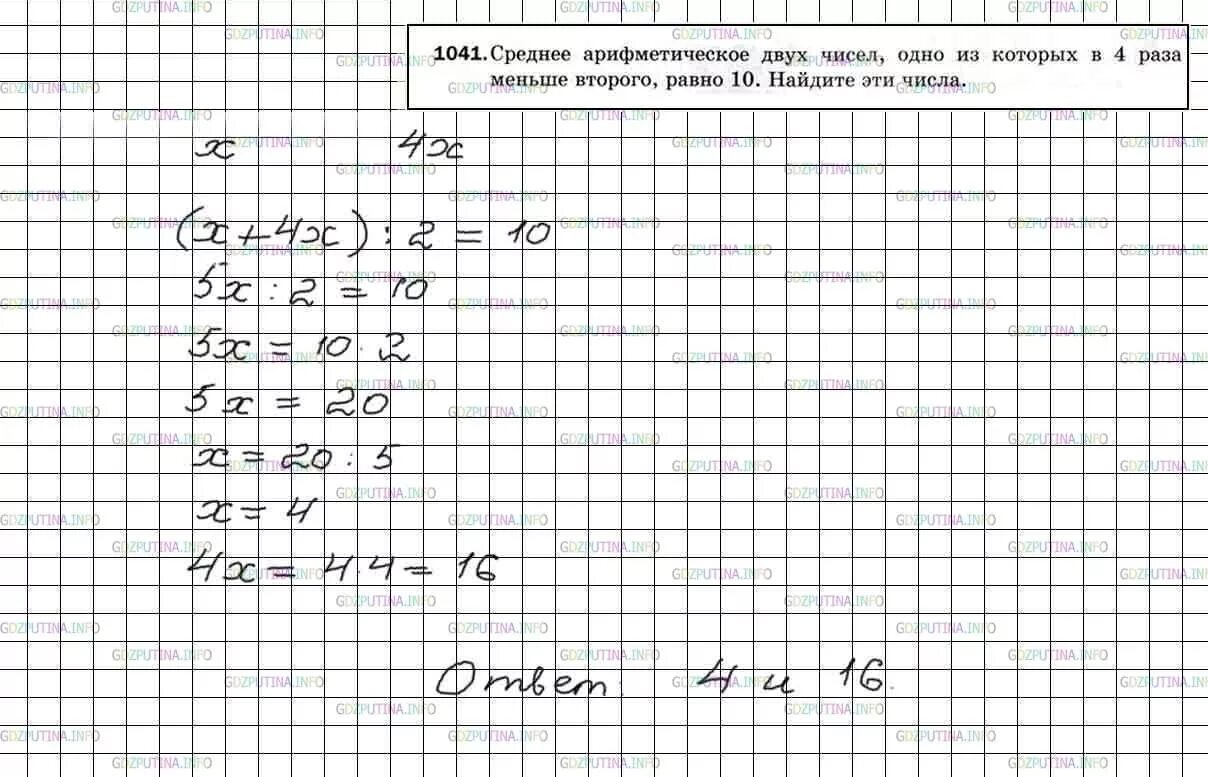 1041. Среднее арифметическое двух чисел, одно из которых в 4 раза
меньше второго, равно 10. Найдите эти числа.
x 4x
(x+4x) : 2 = 10
5x : 2 = 10
5x = 10 · 2
5x = 20
x = 20 : 5
x = 4
4x = 4 · 4 = 16
Ответ: 4 и 16.
GDZPUTINA.INFO